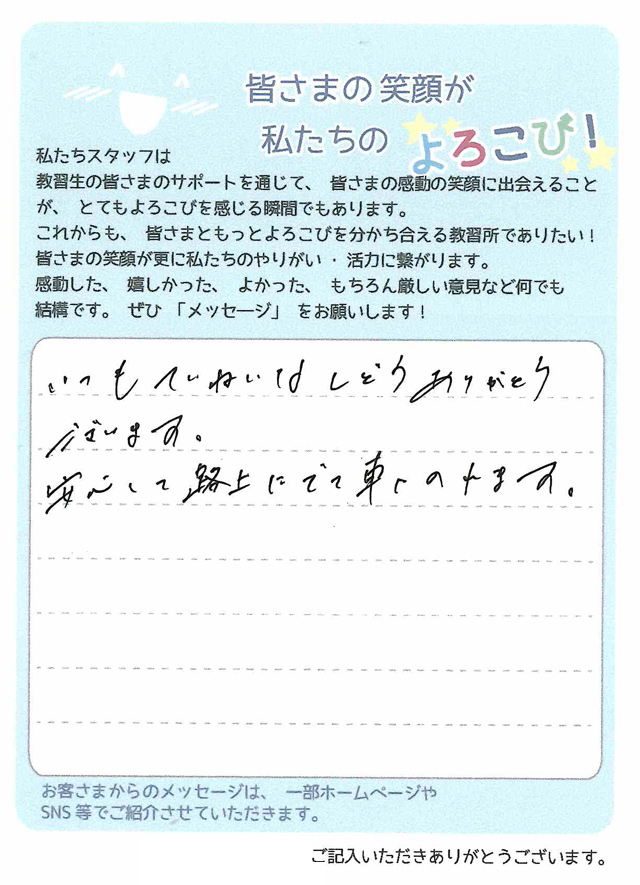 皆さまの笑顔が
私たちの よろこび!
私たちスタッフは
教習生の皆さまのサポートを通じて、 皆さまの感動の笑顔に出会えること
が、 とてもよろこびを感じる瞬間でもあります。
これからも、 皆さまともっとよろこびを分かち合える教習所でありたい!
皆さまの笑顔が更に私たちのやりがい・活力に繋がります。
感動した、 嬉しかった、 よかった、 もちろん厳しい意見など何でも
結構です。 ぜひ 「メッセージ」 をお願いします!
いつもていねいなしどうありがとう
ございます。
安心して路上にでて車にのれます。
お客さまからのメッセージは、 一部ホームページや
SNS 等でご紹介させていただきます。
ご記入いただきありがとうございます。